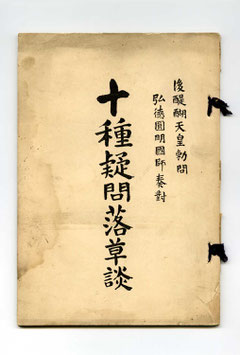 後醍醐天皇勅問
弘徳圓明國師奏對
十種疑問落草談